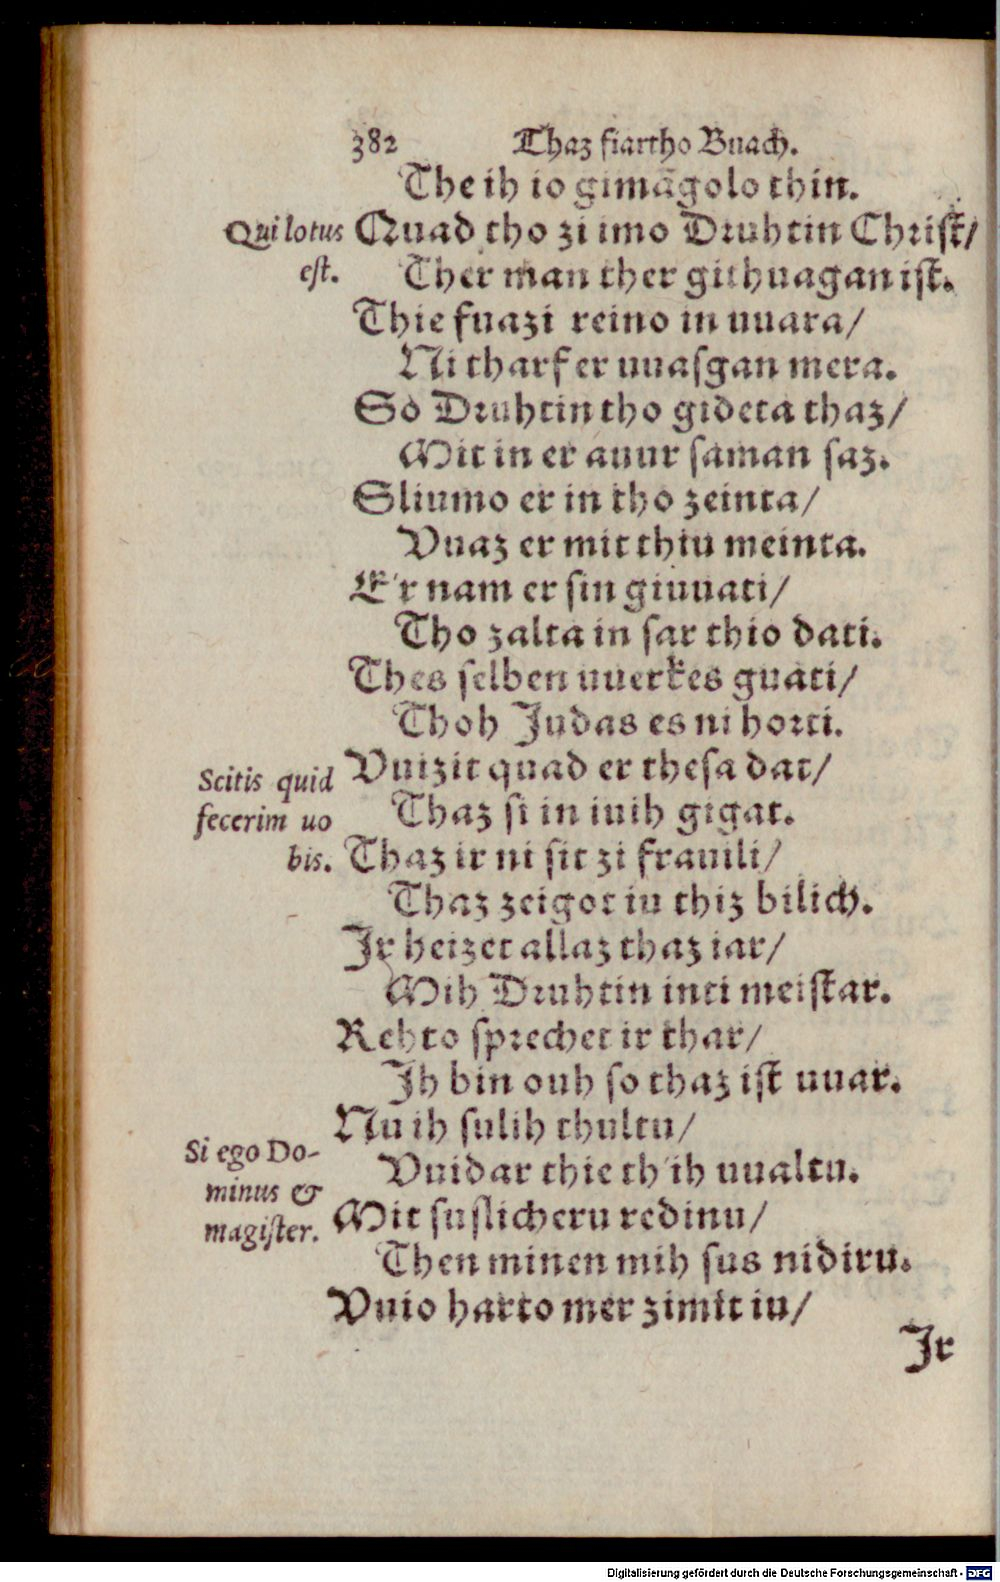 382 Thaz fiartho Buach.
The ih io gimāgolo thin.
Qui lotus est.
Quad tho zi imo Druhtin Christ/
Ther man ther githuagan ist.
Thie fuazi reino in uuara/
Ni tharf er uuasgan mera.
So Druhtin tho gideta thaz/
Mit in er auur saman saz.
Sliumo er in tho zeinta/
Vuaz er mit thiu meinta.
E'r nam er sin giuuati/
Tho zalta in sar thio dati.
Thes selben uuerkes guati/
Thoh Judas es ni horti.
Scitis quid
fecerim uo
bis.
Vuizit quad er thesa dat/
Thaz si in iuih gigat.
Thaz ir ni sit zi frauili/
Thaz zeigot iu thiz bilich.
Ir heizet allaz thaz iar/
Mih Druhtin inti meistar.
Rehto sprechet ir thar/
Ih bin ouh so thaz ist uuar.
Si ego Do-
minus &
magister.
Nu ih sulih thultu/
Vuidar thie th'ih uualtu.
Mit suslicheru redinu/
Then minen mih sus nidiru.
Vuio harto mer zimit iu/
Ir
Digitalisierung gefördert durch die Deutsche Forschungsgemeinschaft - DFG